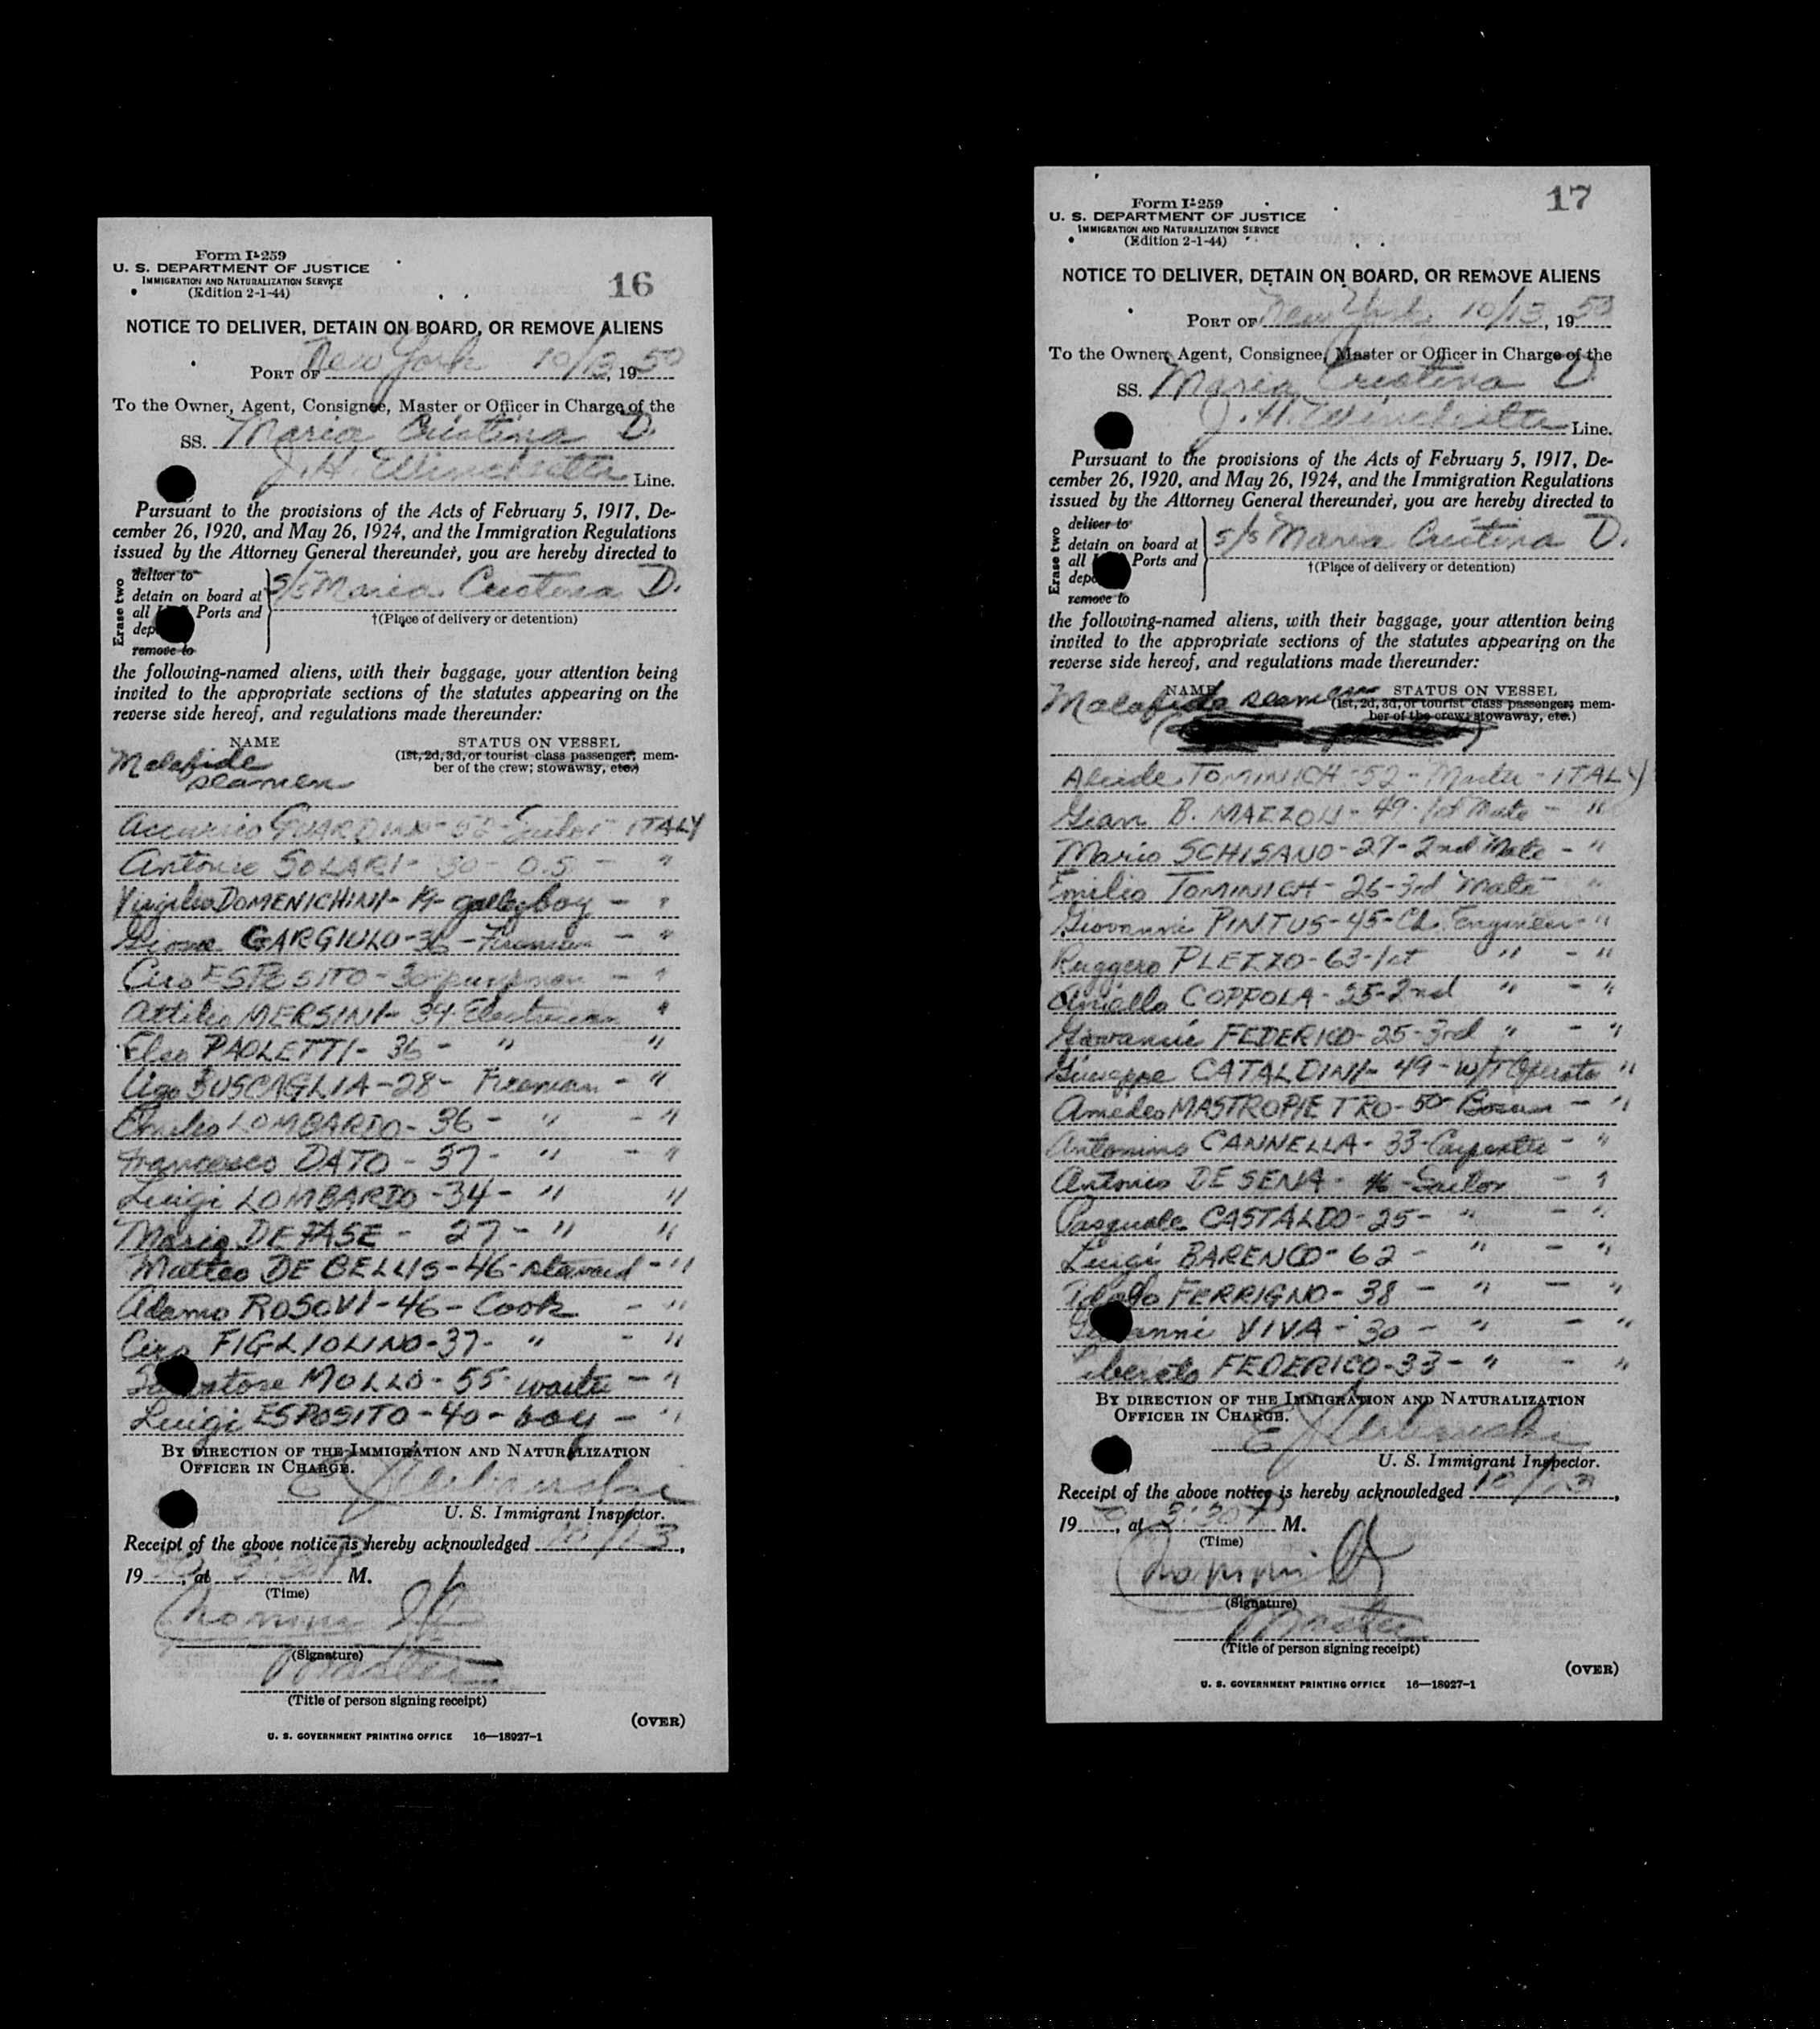 Form I-259
U. S. DEPARTMENT OF JUSTICE
IMMIGRATION AND NATURALIZATION SERVICE
(Edition 2-1-44)
16
NOTICE TO DELIVER, DETAIN ON BOARD, OR REMOVE ALIENS
PORT OF New York 10/13, 1950
To the Owner, Agent, Consignee, Master or Officer in Charge of the
SS. Maria Cristina D.
J. H. Winchester Line.
Pursuant to the provisions of the Acts of February 5, 1917, De-
cember 26, 1920, and May 26, 1924, and the Immigration Regulations
issued by the Attorney General thereunder, you are hereby directed to
Erase two
deliver to
detain on board at
all Ports and
remove to
S/S Maria Cristina D.
†(Place of delivery or detention)
the following-named aliens, with their baggage, your attention being
invited to the appropriate sections of the statutes appearing on the
reverse side hereof, and regulations made thereunder:
NAME STATUS ON VESSEL
(1st, 2d, 3d, or tourist class passenger; mem-
ber of the crew; stowaway, etc.)
Malafide
seamen
Sailor - ITALY
Antonio SOLARI - 30 - O.S. - "
Virgilio DOMENICHINI - 19 - galleyboy - "
GARGIULO - 36 - Fireman - "
Ciro ESPOSITO - 30 - pumpman - "
Attilio MERSINI - 34 - Electrician "
Elso PAOLETTI - 36 - " "
Ugo BUSCAGLIA - 28 - Fireman - "
Emilio LOMBARDO - 36 - " - "
Francesco DATO - 37 - " - "
Luigi LOMBARDO - 34 - " "
Mario DE FASE - 27 - " "
Matteo DE BELLIS - 46 - steward - "
Adamo ROSOVI - 46 - Cook - "
Ciro FIGLIOLINO - 37 - " - "
Salvatore MOLLO - 55 - waiter - "
Luigi ESPOSITO - 40 - boy - "
BY DIRECTION OF THE IMMIGRATION AND NATURALIZATION
OFFICER IN CHARGE.
U. S. Immigrant Inspector.
Receipt of the above notice is hereby acknowledged 10/13,
19 , at 3:30 P M.
(Time)
(Signature)
Master
(Title of person signing receipt)
(OVER)
U. S. GOVERNMENT PRINTING OFFICE 16—18927-1
Form I-259
U. S. DEPARTMENT OF JUSTICE
IMMIGRATION AND NATURALIZATION SERVICE
(Edition 2-1-44)
17
NOTICE TO DELIVER, DETAIN ON BOARD, OR REMOVE ALIENS
PORT OF New York 10/13, 1950
To the Owner, Agent, Consignee, Master or Officer in Charge of the
SS. Maria Cristina D.
J. H. Winchester Line.
Pursuant to the provisions of the Acts of February 5, 1917, De-
cember 26, 1920, and May 26, 1924, and the Immigration Regulations
issued by the Attorney General thereunder, you are hereby directed to
Erase two
deliver to
detain on board at
all Ports and
remove to
S/S Maria Cristina D.
†(Place of delivery or detention)
the following-named aliens, with their baggage, your attention being
invited to the appropriate sections of the statutes appearing on the
reverse side hereof, and regulations made thereunder:
NAME STATUS ON VESSEL
(1st, 2d, 3d, or tourist class passenger; mem-
ber of the crew; stowaway, etc.)
Malafide seamen
TOMINICH - 52 - Master - ITALY
Gian B. MAZZOLI - 49 - 1st Mate - "
Mario SCHISANO - 27 - 2nd Mate - "
Emilio TOMINICH - 26 - 3rd Mate - "
Giovanni PINTUS - 45 - Ch. Engineer - "
Ruggero PLETZO - 63 - 1st " - "
Aniello COPPOLA - 25 - 2nd " - "
Giovanni FEDERICO - 25 - 3rd " - "
Giuseppe CATALDINI - 49 - W/T Operator "
Amedeo MASTROPIETRO - 50 - Bosun - "
Antonino CANNELLA - 33 - Carpenter - "
Antonio DE SENA - 46 - Sailor - "
Pasquale CASTALDO - 25 - " - "
Luigi BARENCO - 62 - " - "
FERRIGNO - 38 - " - "
Giovanni VIVA - 30 - " - "
Liberato FEDERICO - 33 - " - "
BY DIRECTION OF THE IMMIGRATION AND NATURALIZATION
OFFICER IN CHARGE.
U. S. Immigrant Inspector.
Receipt of the above notice is hereby acknowledged 10/13,
19 , at 3:30 P M.
(Time)
(Signature)
Master
(Title of person signing receipt)
(OVER)
U. S. GOVERNMENT PRINTING OFFICE 16—18927-1